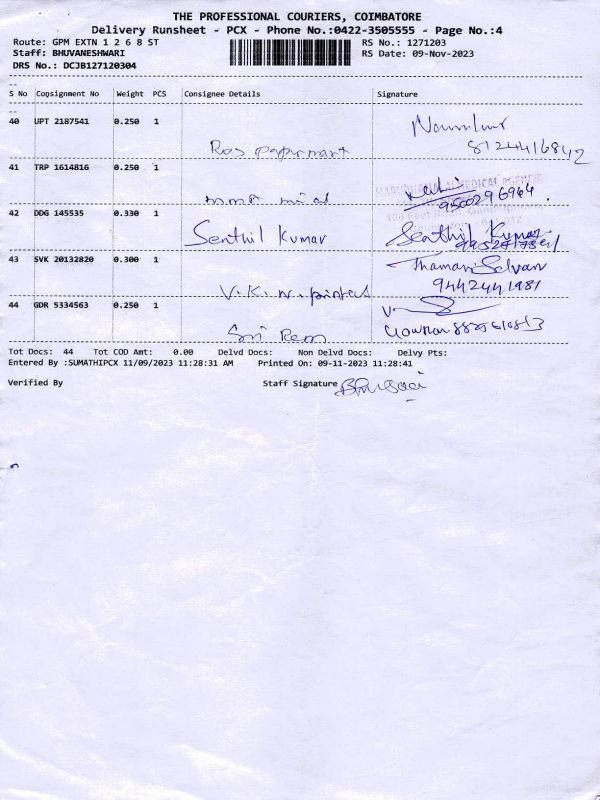 THE PROFESSIONAL COURIERS, COIMBATORE
Delivery Runsheet - PCX - Phone No.:0422-3505555 - Page No.:4
Route: GPM EXTN 1 2 6 8 ST
RS No.: 1271203
Staff: BHUVANESHWARI
RS Date: 09-Nov-2023
DRS No.: DCJB127120304
S No Consignment No Weight PCS Consignee Details Signature
40 UPT 2187541 0.250 1
8124416842
41 TRP 1614816 0.250 1
9500296964
42 DDG 145535 0.330 1 Senthil Kumar Senthil Kumar
43 SVK 20132820 0.300 1 Thamarai Selvan
V.K.N. printers 9442441981
44 GDR 5334563 0.250 1
Sri Ram
Tot Docs: 44 Tot COD Amt: 0.00 Delvd Docs: Non Delvd Docs: Delvy Pts:
Entered By :SUMATHIPCX 11/09/2023 11:28:31 AM Printed On: 09-11-2023 11:28:41
Verified By Staff Signature